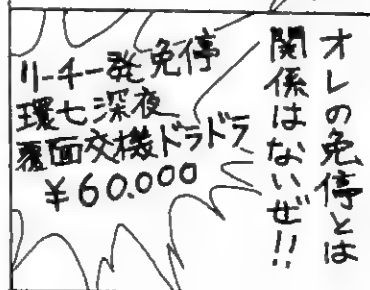 オレの免停とは
関係はないぜ!!
リーチ一発免停
環七深夜
覆面交機ドラドラ
¥60.000